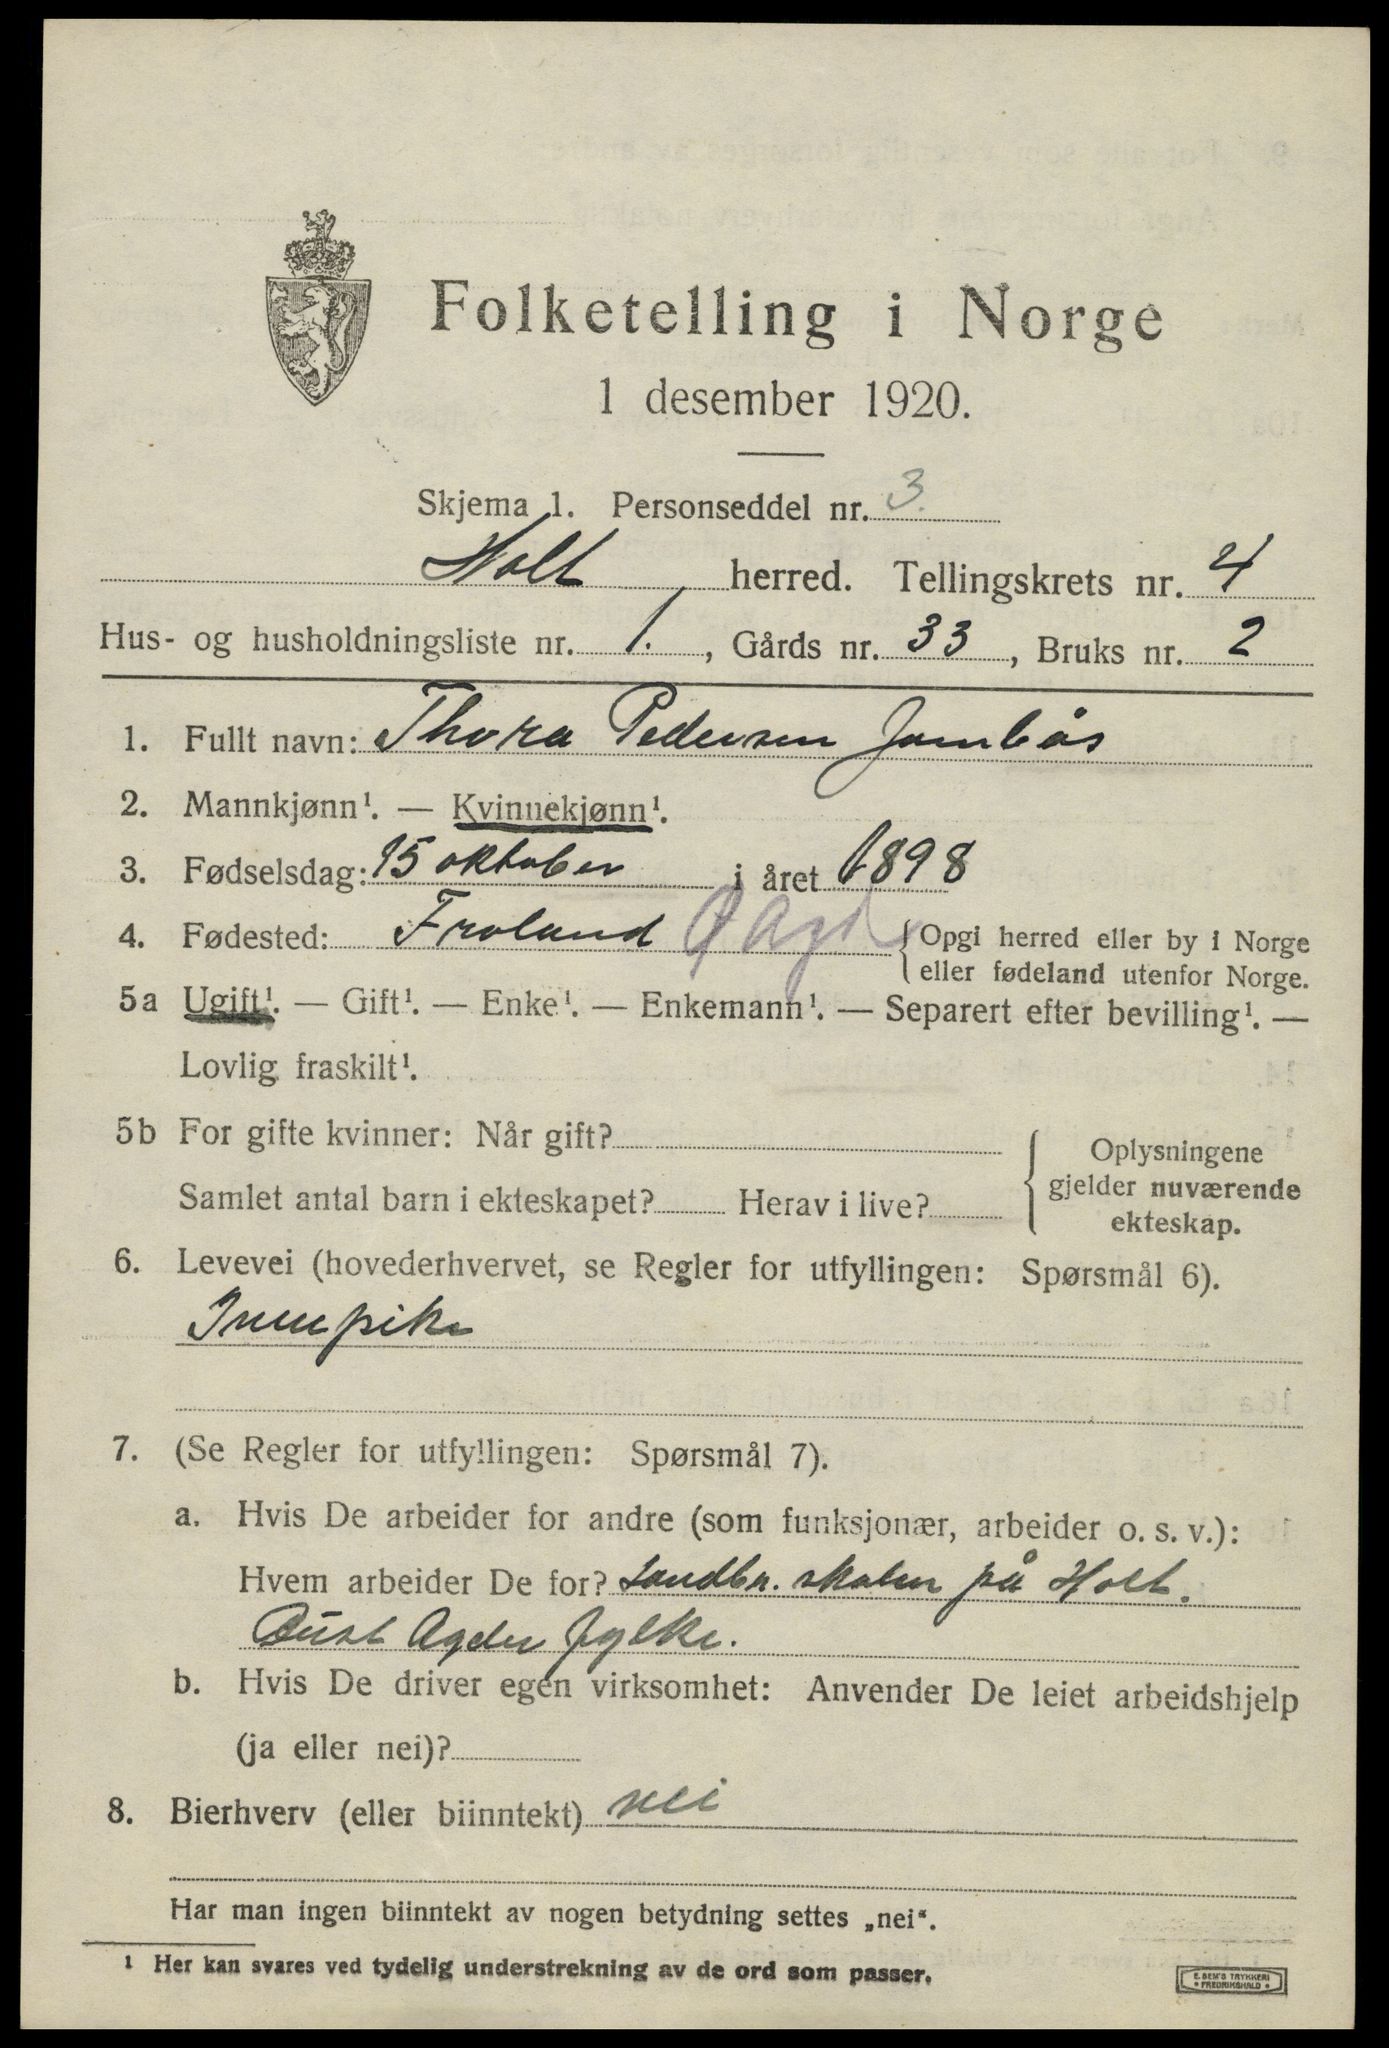 Folketelling i Norge
1 desember 1920.
Skjema 1. Personseddel nr. 3.
Holt herred. Tellingskrets nr. 4
Hus- og husholdningsliste nr. 1., Gårds nr. 33, Bruks nr. 2
1. Fullt navn: Thora Pedersen Jomås
2. Mannkjønn¹. — Kvinnekjønn¹.
3. Fødselsdag: 15 oktober i året 1898
4. Fødested: Froland Ø Agd { Opgi herred eller by i Norge
eller fødeland utenfor Norge.
5a Ugift¹. — Gift¹. — Enke¹. — Enkemann¹. — Separert efter bevilling¹. —
Lovlig fraskilt¹.
5b For gifte kvinner: Når gift?
Samlet antal barn i ekteskapet? Herav i live?
Oplysningene
gjelder nuværende
ekteskap.
6. Levevei (hovederhvervet, se Regler for utfyllingen: Spørsmål 6).
Innepike
7. (Se Regler for utfyllingen: Spørsmål 7).
a. Hvis De arbeider for andre (som funksjonær, arbeider o. s. v.):
Hvem arbeider De for? Landbr. skolen på Holt.
Aust Agder fylke.
b. Hvis De driver egen virksomhet: Anvender De leiet arbeidshjelp
(ja eller nei)?
8. Bierhverv (eller biinntekt) nei
Har man ingen biinntekt av nogen betydning settes „nei“.
¹ Her kan svares ved tydelig understrekning av de ord som passer.
E. SEM'S TRYKKERI
• FREDRIKSHALD •